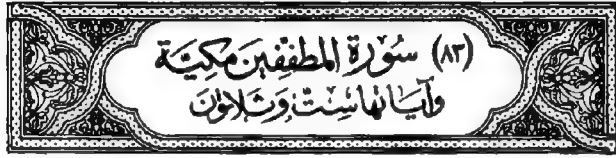 (٨٣) سُورَة المطففِين مكيَّة
وآياتها سِتٌّ وَثَلاثونَ